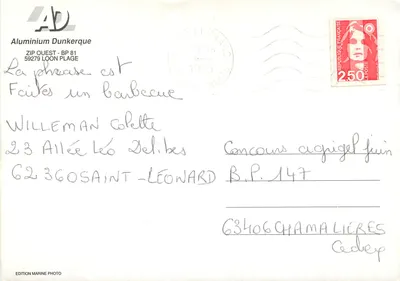 AD
Aluminium Dunkerque
ZIP OUEST - BP 81
59279 LOON PLAGE
La phrase est
Faites un barbecue
WILLEMAN Colette
23 Allée Léo Delibes
62360 SAINT-LÉONARD
Concours agrigel juin
B.P. 147
63406 CHAMALIÈRES
Cedex
2,50
EDITION MARINE PHOTO